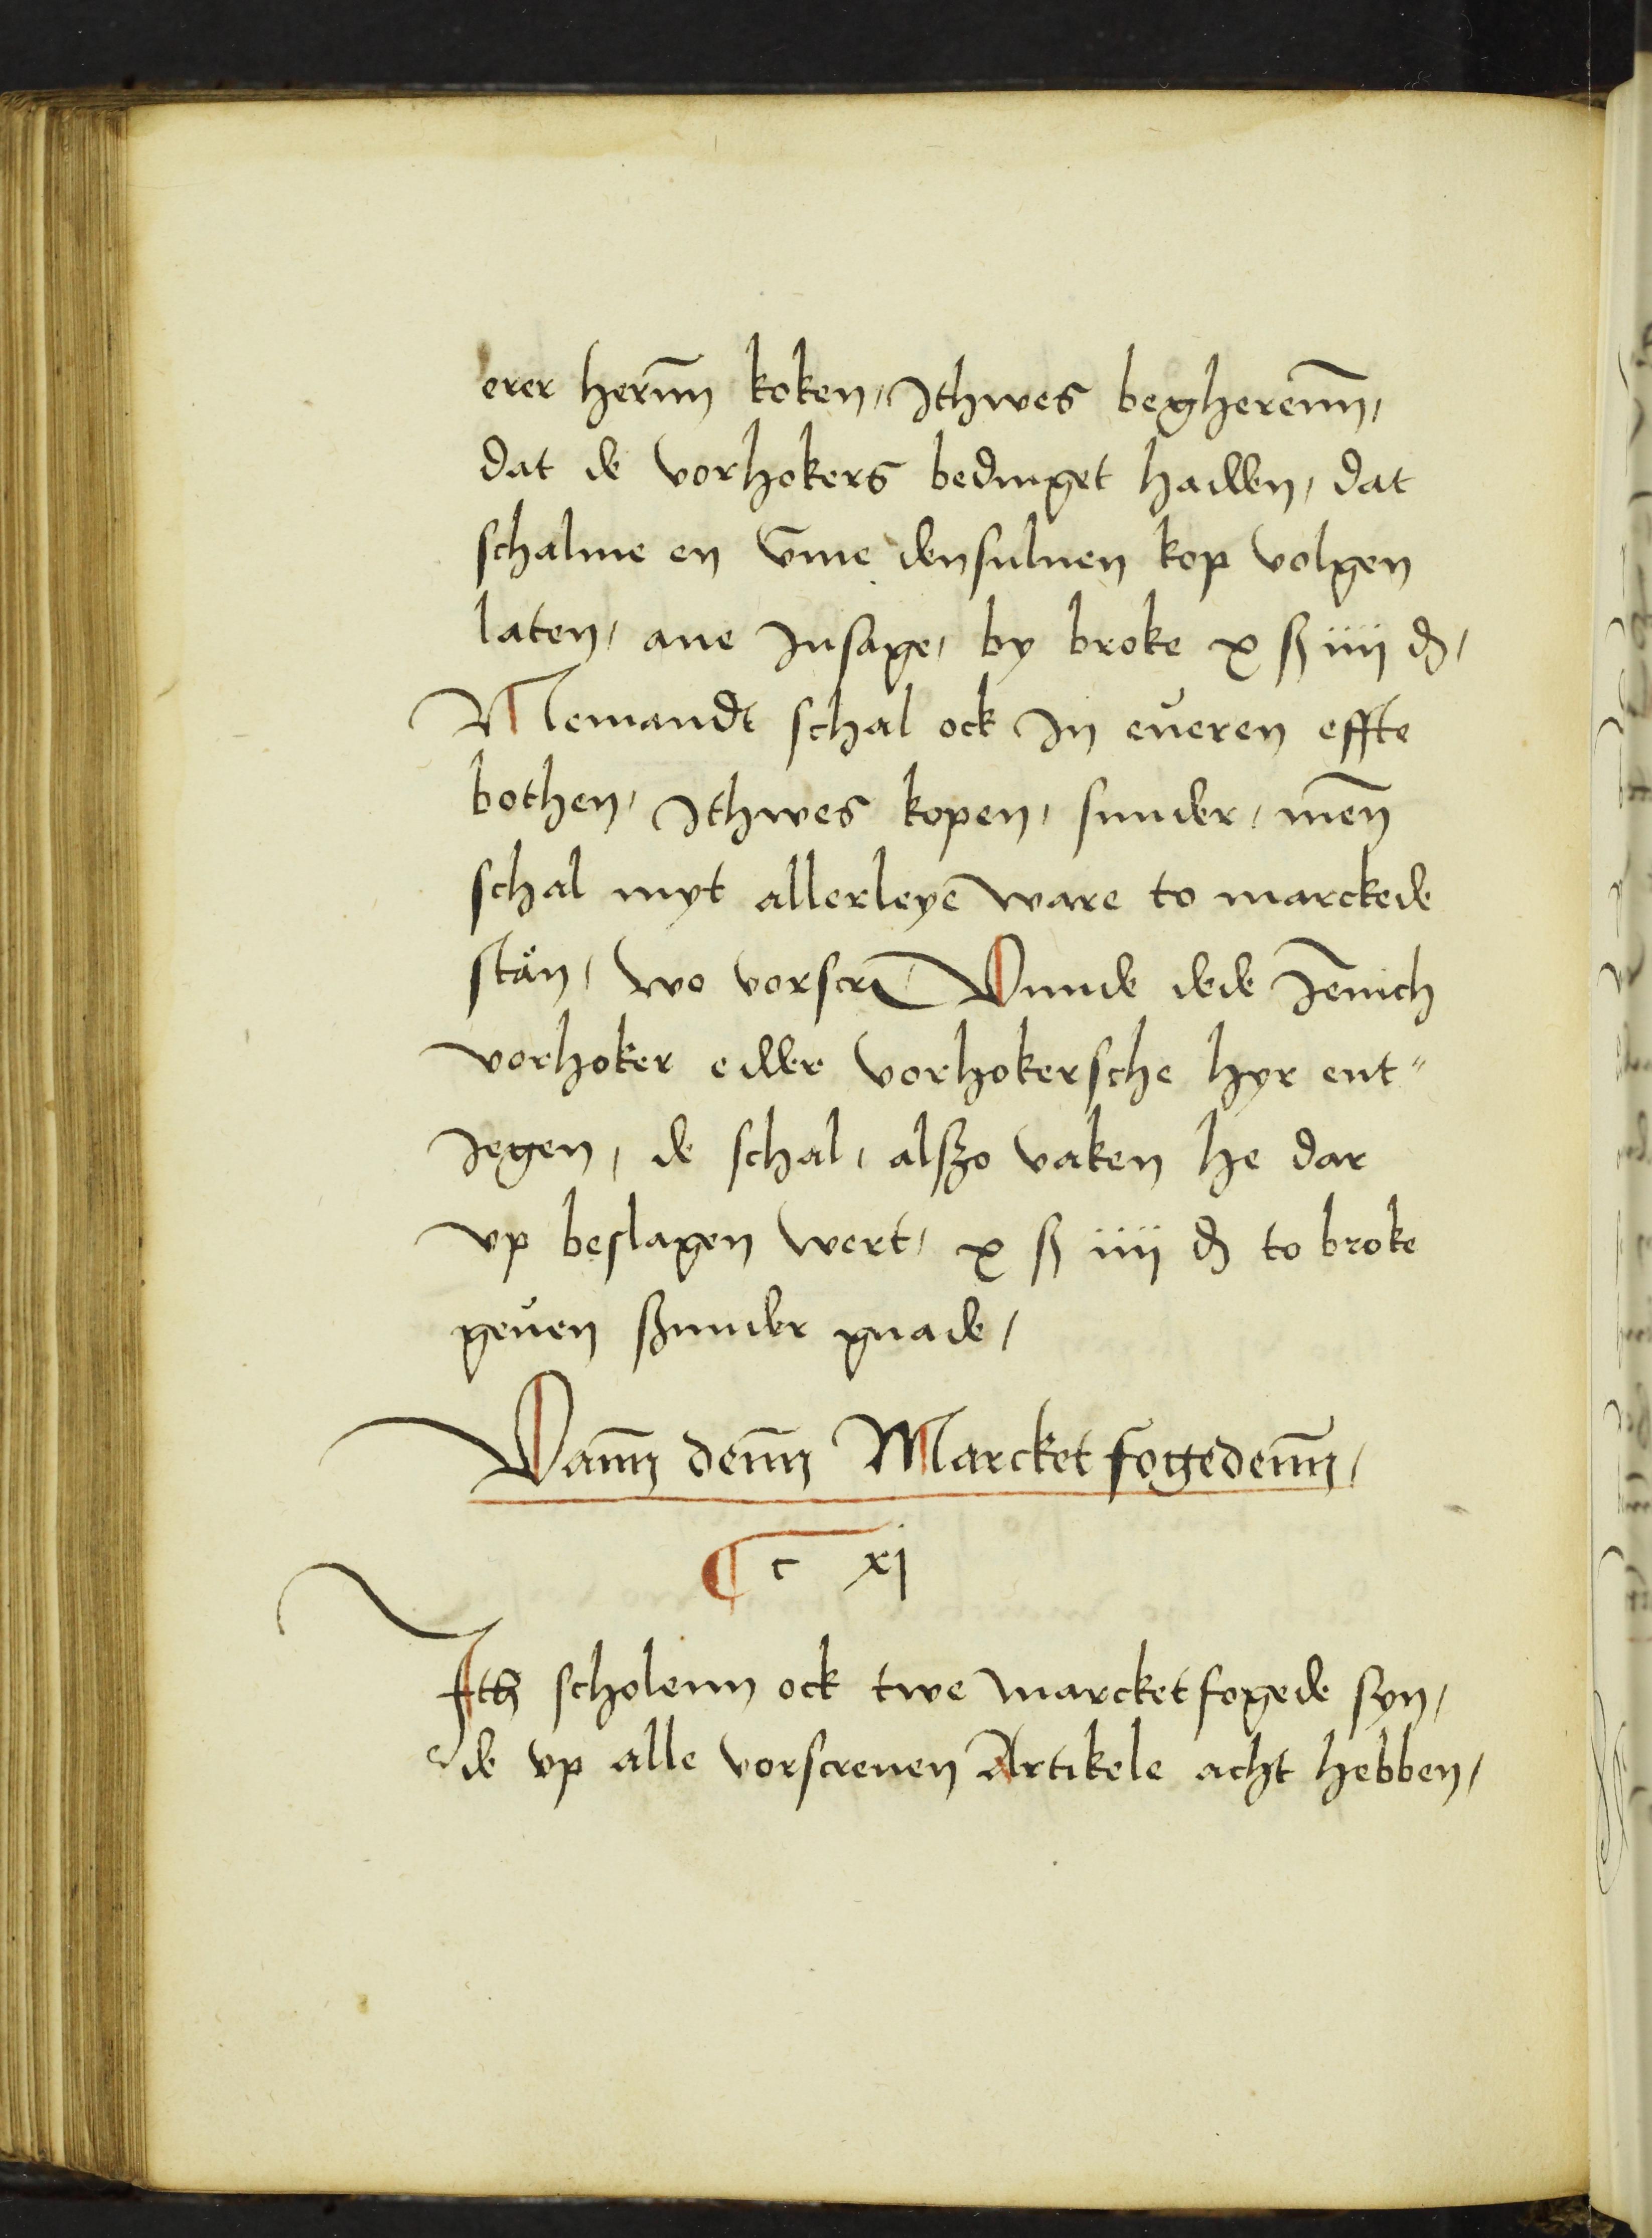 erer herñn koken, Ithwes begherenn̄,
dat de vorhokers bedinget hadden, dat
schalme en v̄me densuluen kop volgen
laten, ane Insage, by broke x ß iiii ₰,
Nemandt schal ock In eueren effte
bothen, Ithwes kopen, sunder, men̄
schal myt allerleye ware to marckede
stån, wo vorscrͨ Vnnde dede Jēnich
vorhoker edder vorhokersche hyr ent"
Jegen, de schal, alßo vaken he dar
vp beslagen wert, x ß iiii ₰ to broke
geuen ßunder gnade,
Vann̄ denn̄ Marcketfogedenn̄,
¶ c xj
Ith scholenn ock twe marcketfogede syn,
de vp alle vorscreuen Artikele acht hebben,